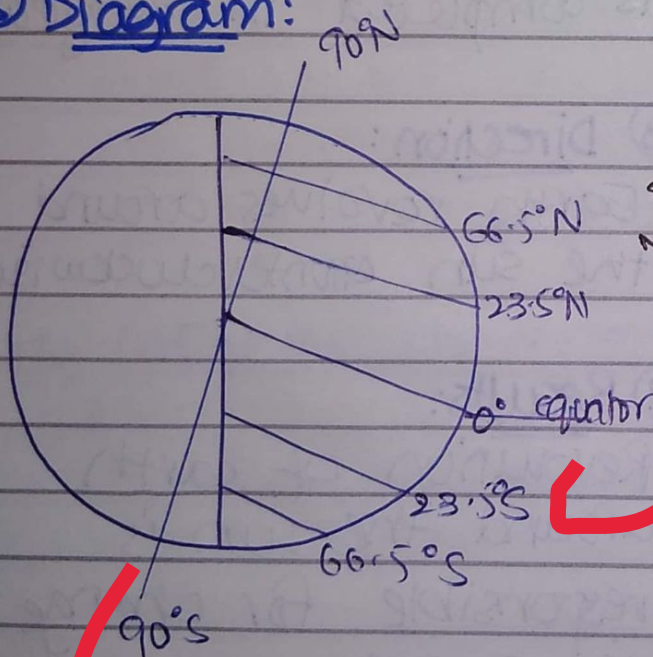 Diagram:
90N
66.5°N
23.5°N
0° equator
23.5°S
66.5°S
90°S